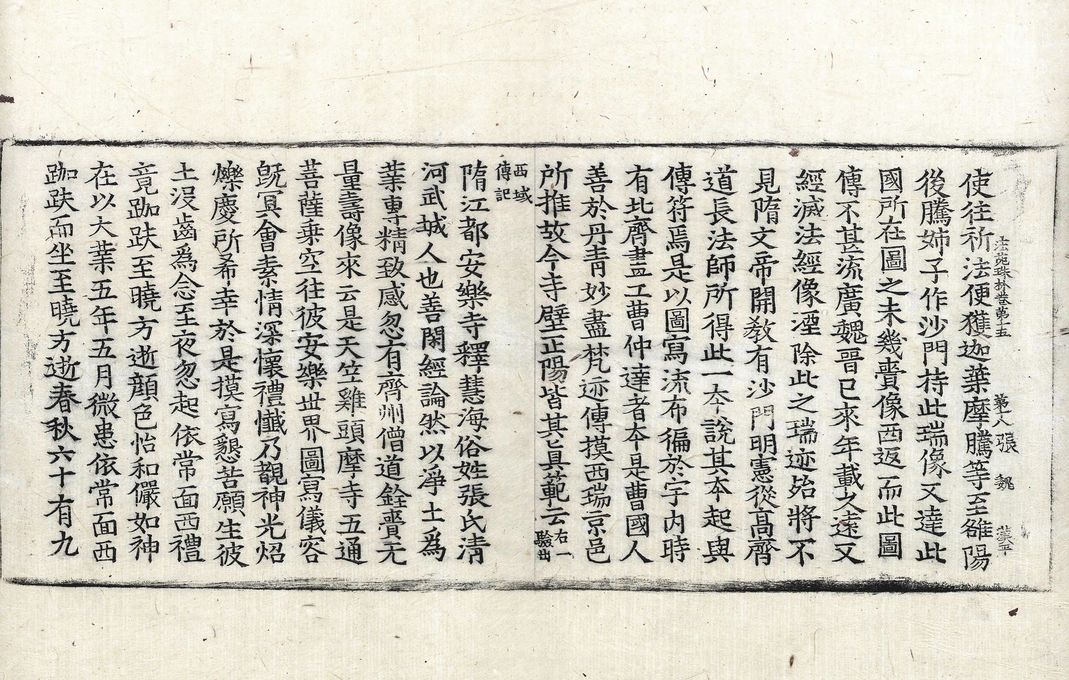 使往祈法便獲迦葉摩騰等至雒陽
法苑珠林卷第十五 第八張 魏
後騰姊子作沙門持此瑞像又達此
國所在圖之未幾賷像西返而此圖
傳不甚流廣魏晉已來年載久遠又
經滅法經像湮除此之瑞迹殆將不
見隋文帝開敎有沙門明憲從高齊
道長法師所得此一夲說其夲起與
傳符焉是以圖寫流布徧於宇內時
有北齊畫工曹仲達者夲是曹國人
善於丹青妙盡梵迹傳摸西瑞京邑
所推故今寺壁正陽皆其眞範云右一驗出
西域傳記
隋江都安樂寺釋慧海俗姓張氏清
河武城人也善閑經論然以淨土爲
業專精致感忽有齊州僧道詮賷无
量壽像來云是天竺雞頭摩寺五通
菩薩乗空往彼安樂世界圖寫儀容
旣冥會素情深懷禮懺乃覩神光炤
爍慶所希幸於是摸寫懇苦願生彼
土没齒爲念至夜忽起依常面西禮
竟跏趺至曉方逝顔色怡和儼如神
在以大業五年五月微患依常面西
跏趺而坐至曉方逝春秋六十有九